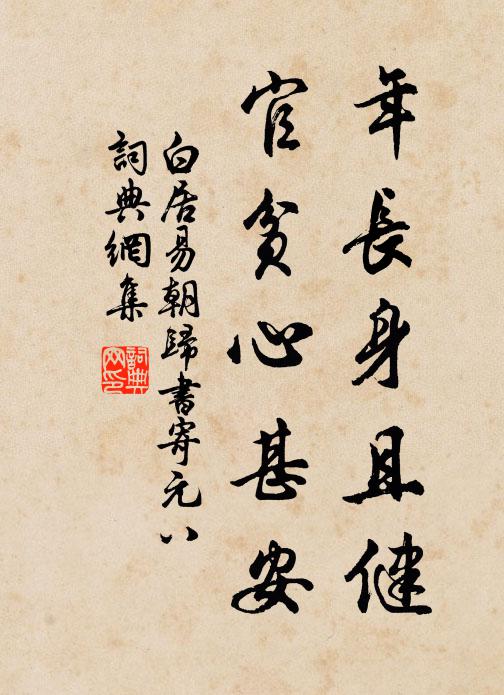 年長身且健
官貧心甚安
白居易朝歸書寄元八
詞典網集
詞典网印